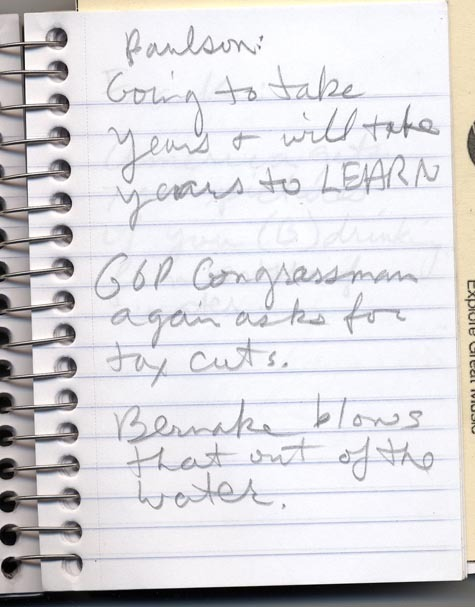 Paulson:
Going to take
years + will take
years to LEARN
GOP Congressman
again asks for
tax cuts.
Bernake blows
that out of the
water.
Explore Great Music